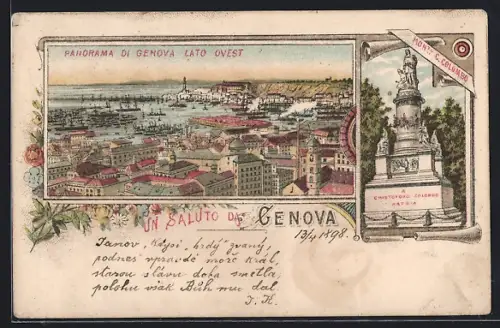 PANORAMA DI GENOVA LATO OVEST
MONTO C. COLOMBO
A
CRISTOFORO COLOMBO
PATRIA
UN SALUTO DA GENOVA
13/4 1898.
Janov, kdysi „hrdý" zvaný,
podnes vpravdě moře král,
starou slávu doba smetla,
polohu však Bůh mu dal.
J. K.